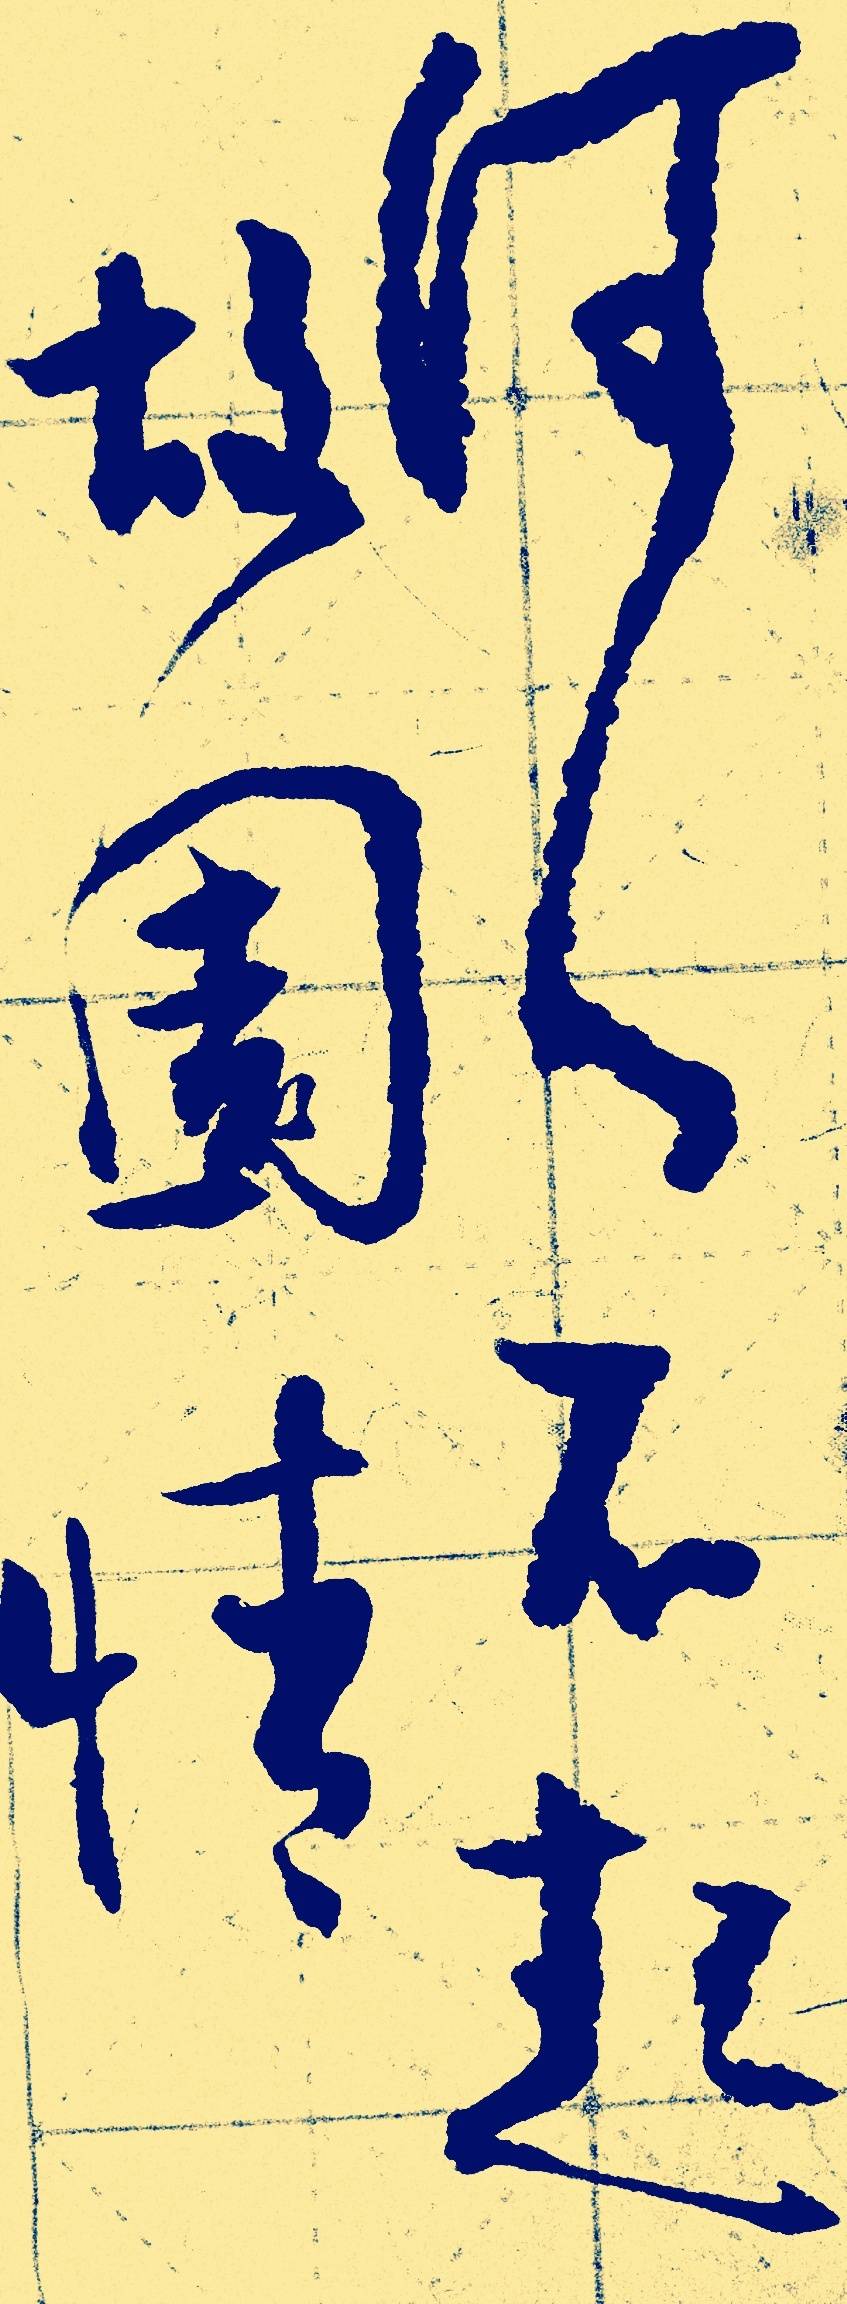 何人不起
故園情